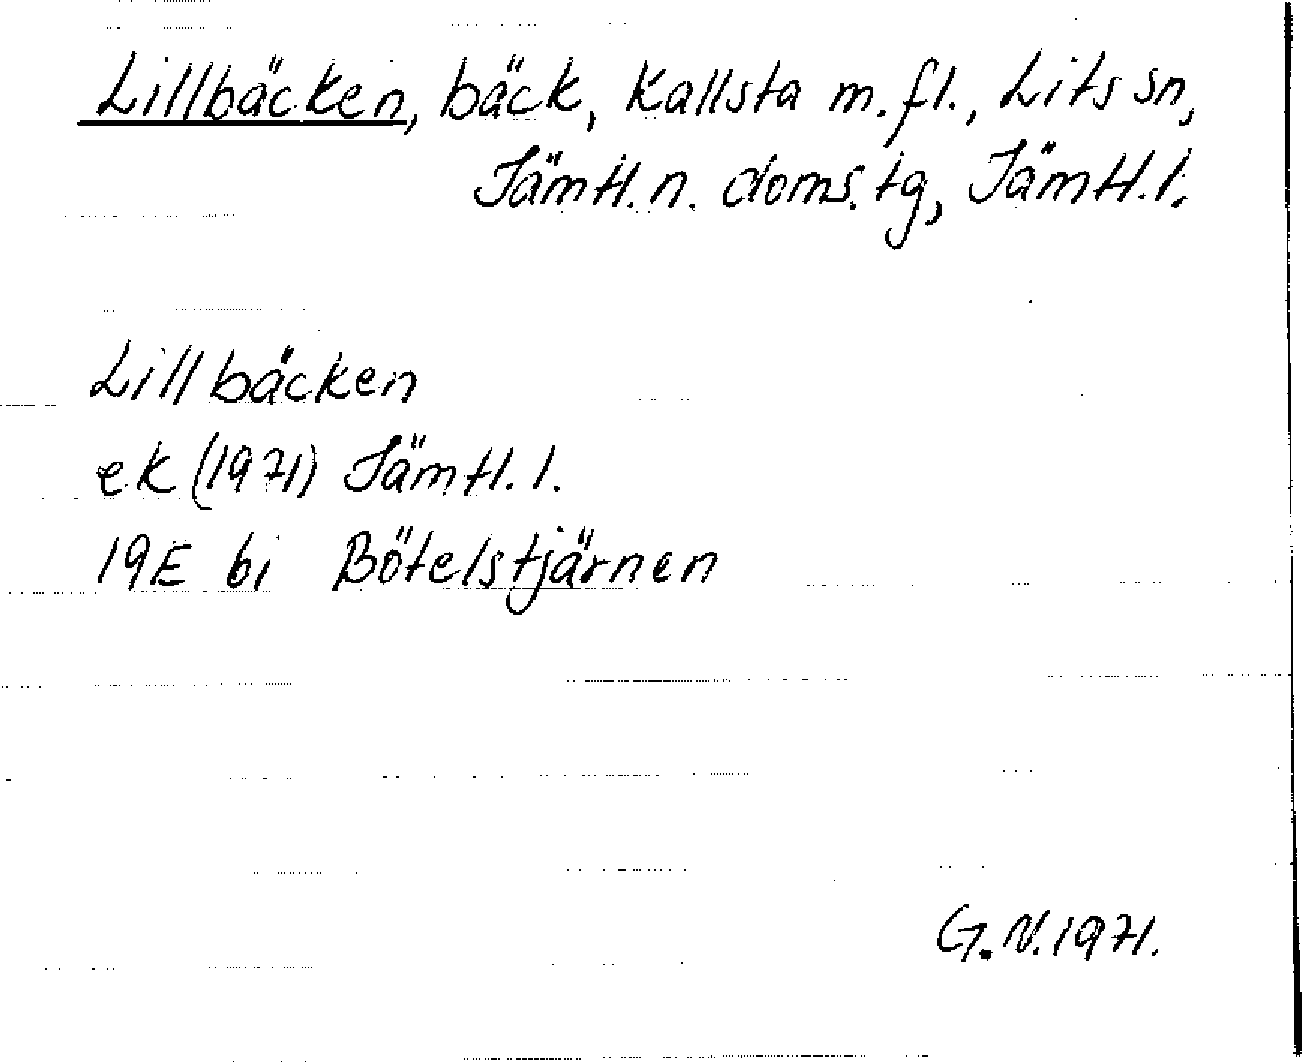 Lillbäcken, bäck, Kallsta m.fl., Lits sn,
Jämtl. n. doms. tg, Jämtl. l.
Lillbäcken
ek (1971) Jämtl. l.
19E bi Bötelstjärnen
G.N. 1971.